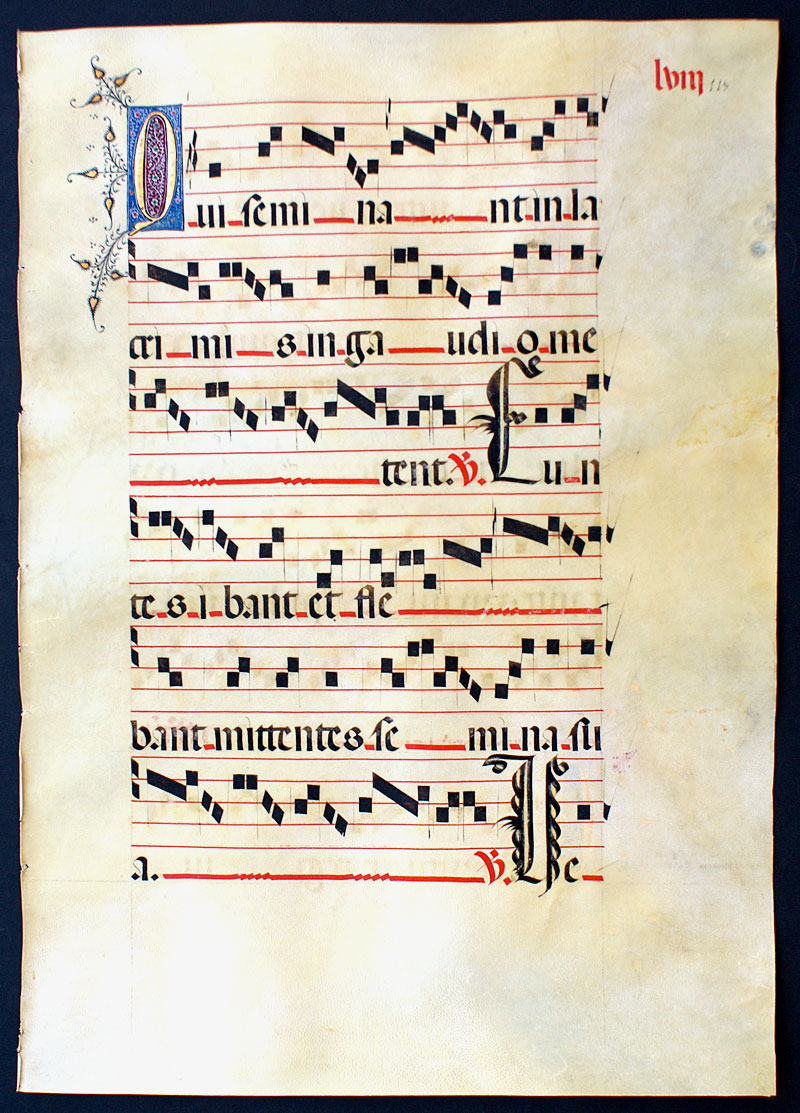 lviij
Qui semi na nt in la
cri mi s in ga udi o me
tent. ℣. Eu n
te s i bant et fle
bant mittentes se mi na su
a. ℣. Ve